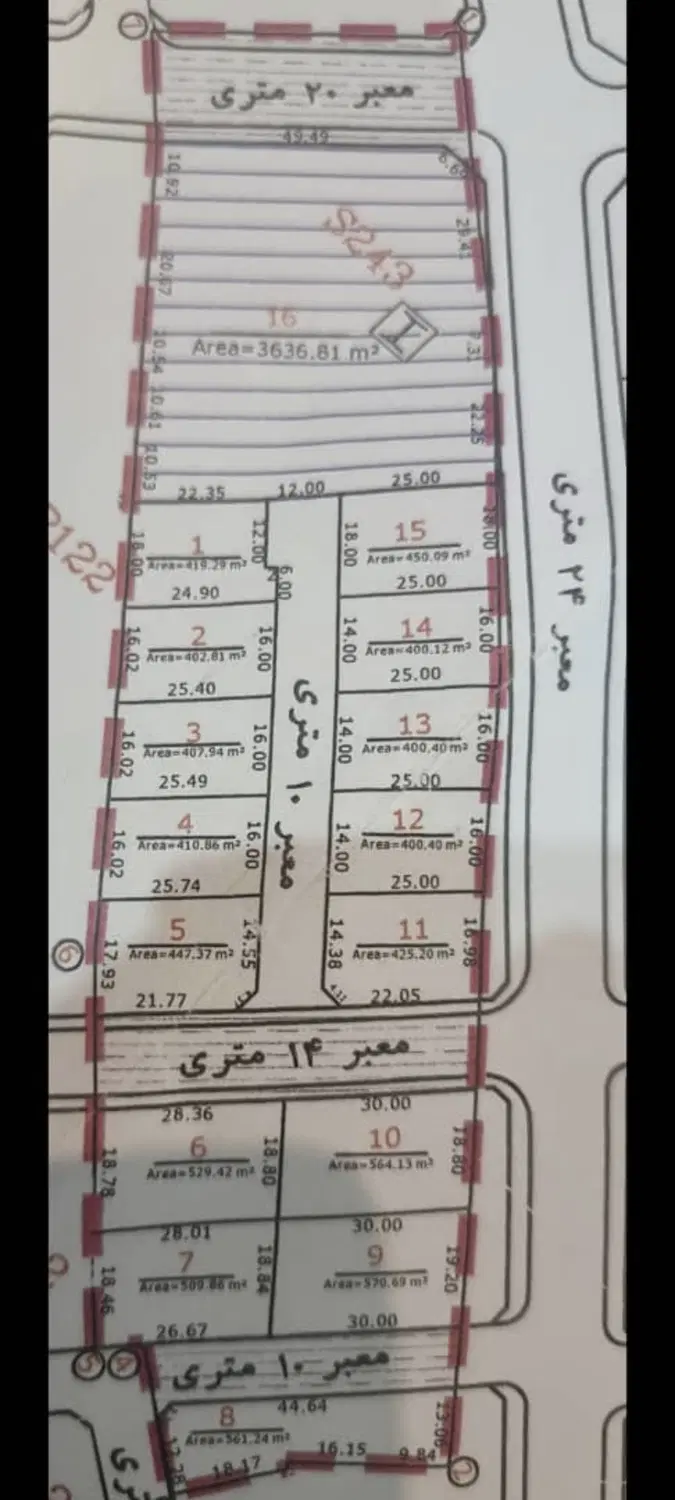 معبر ۲۰ متری
49.49
10.92
6.60
S243
29.41
20.67
16
Area=3636.81 m²
I
10.54
10.61
22.25
10.53
22.35
12.00
25.00
معبر ۲۴ متری
122
18.00
1
Area=419.29 m²
12.00
6.00
18.00
15
Area=450.09 m²
18.00
24.90
25.00
16.02
2
Area=402.81 m²
16.00
14.00
14
Area=400.12 m²
16.00
25.40
25.00
معبر ۱۰ متری
16.02
3
Area=407.94 m²
16.00
14.00
13
Area=400.40 m²
16.00
25.49
25.00
16.02
4
Area=410.86 m²
16.00
14.00
12
Area=400.40 m²
16.00
25.74
25.00
6
17.93
5
Area=447.37 m²
14.55
14.38
11
Area=425.20 m²
16.98
21.77
22.05
معبر ۱۴ متری
28.36
30.00
18.78
6
Area=529.42 m²
18.80
10
Area=564.13 m²
18.80
28.01
30.00
18.46
7
Area=509.86 m²
18.84
9
Area=570.69 m²
19.20
26.67
30.00
5
4
معبر ۱۰ متری
44.64
8
Area=561.24 m²
13.00
16.15
9.84
18.17
2
متری